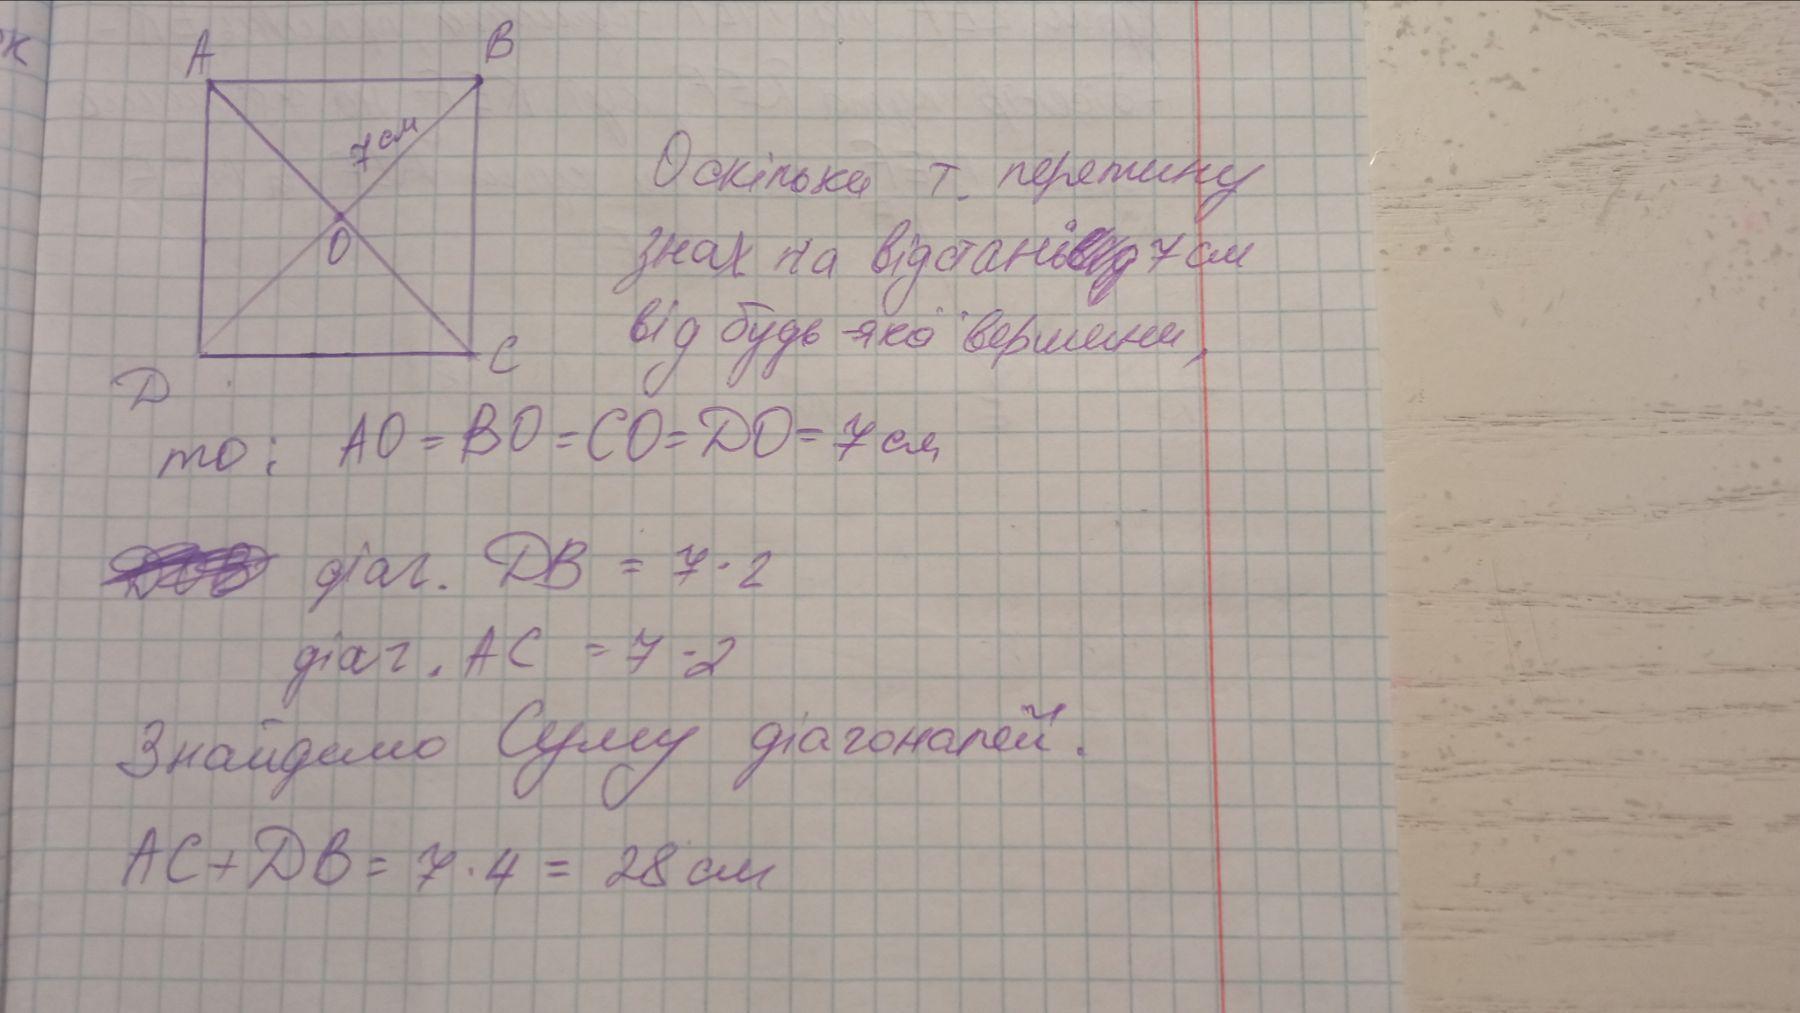 A B
7 см
O
D C
Оскільки т. перетину
знах на відстані 7 см
від будь-якої вершини,
то: AO = BO = CO = DO = 7 см
діаг. DB = 7 · 2
діаг. AC = 7 · 2
Знайдемо Суму діагоналей.
AC + DB = 7 · 4 = 28 см